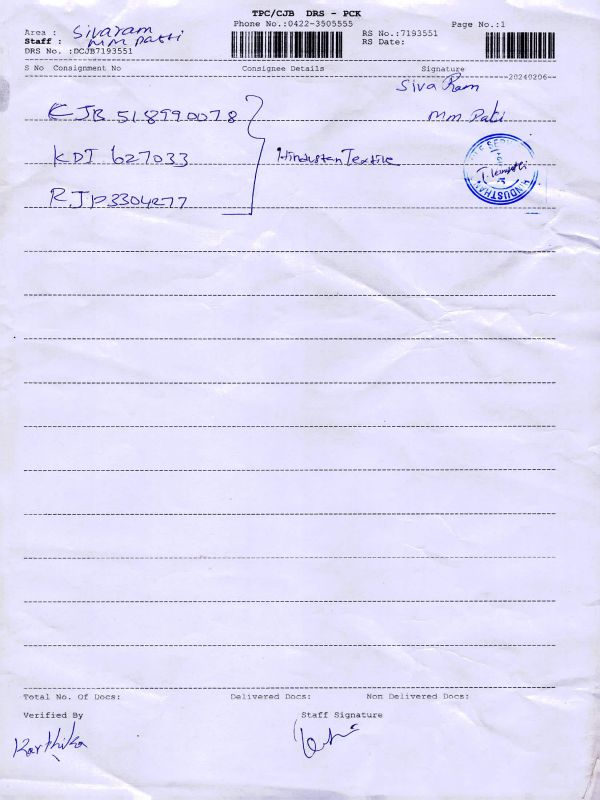 TPC/CJB DRS - PCK
Phone No.:0422-3505555 Page No.:1
Area : Sivaram
Staff : MM Patti
RS No.:7193551
DRS No. :DCJB7193551 RS Date:
S No Consignment No Consignee Details Signature
20240206
Siva Ram
CJB 518990078 MM Patti
KDI 627033 Hindustan Textile
RJP3304277
Total No. Of Docs: Delivered Docs: Non Delivered Docs:
Verified By Staff Signature
Karthika